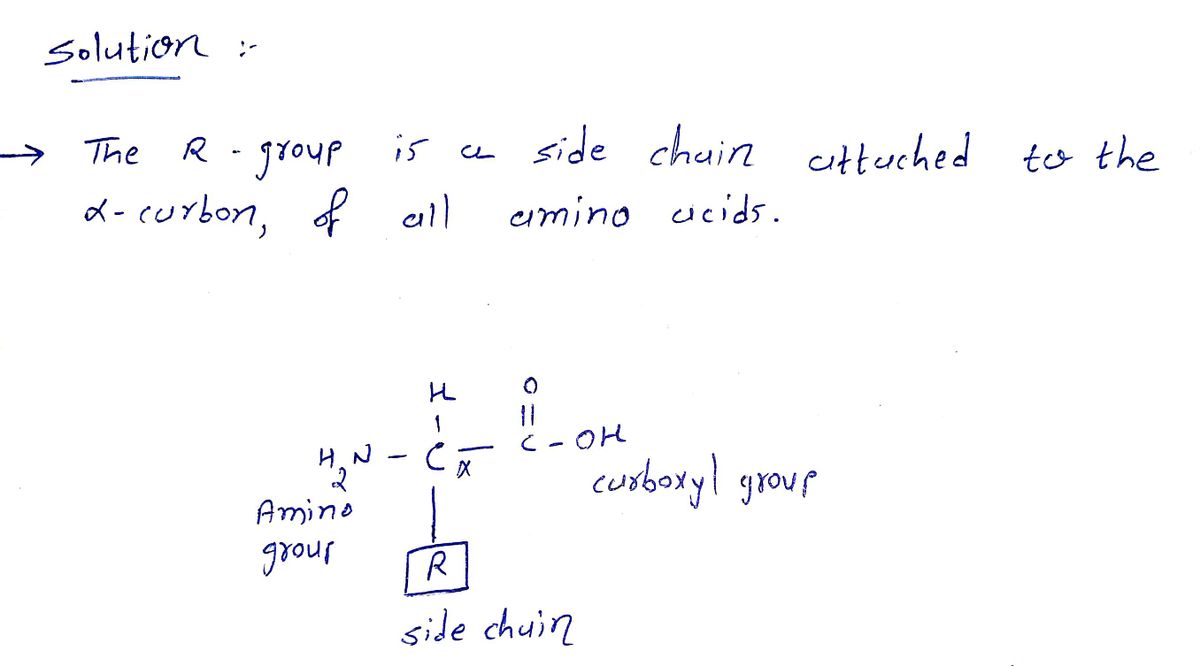 Solution :-
→ The R - group is a side chain attached to the
α - carbon, of all amino acids.
H O
| ||
H2N - Cα - C - OH
carboxyl group
Amino
group
|
R
side chain